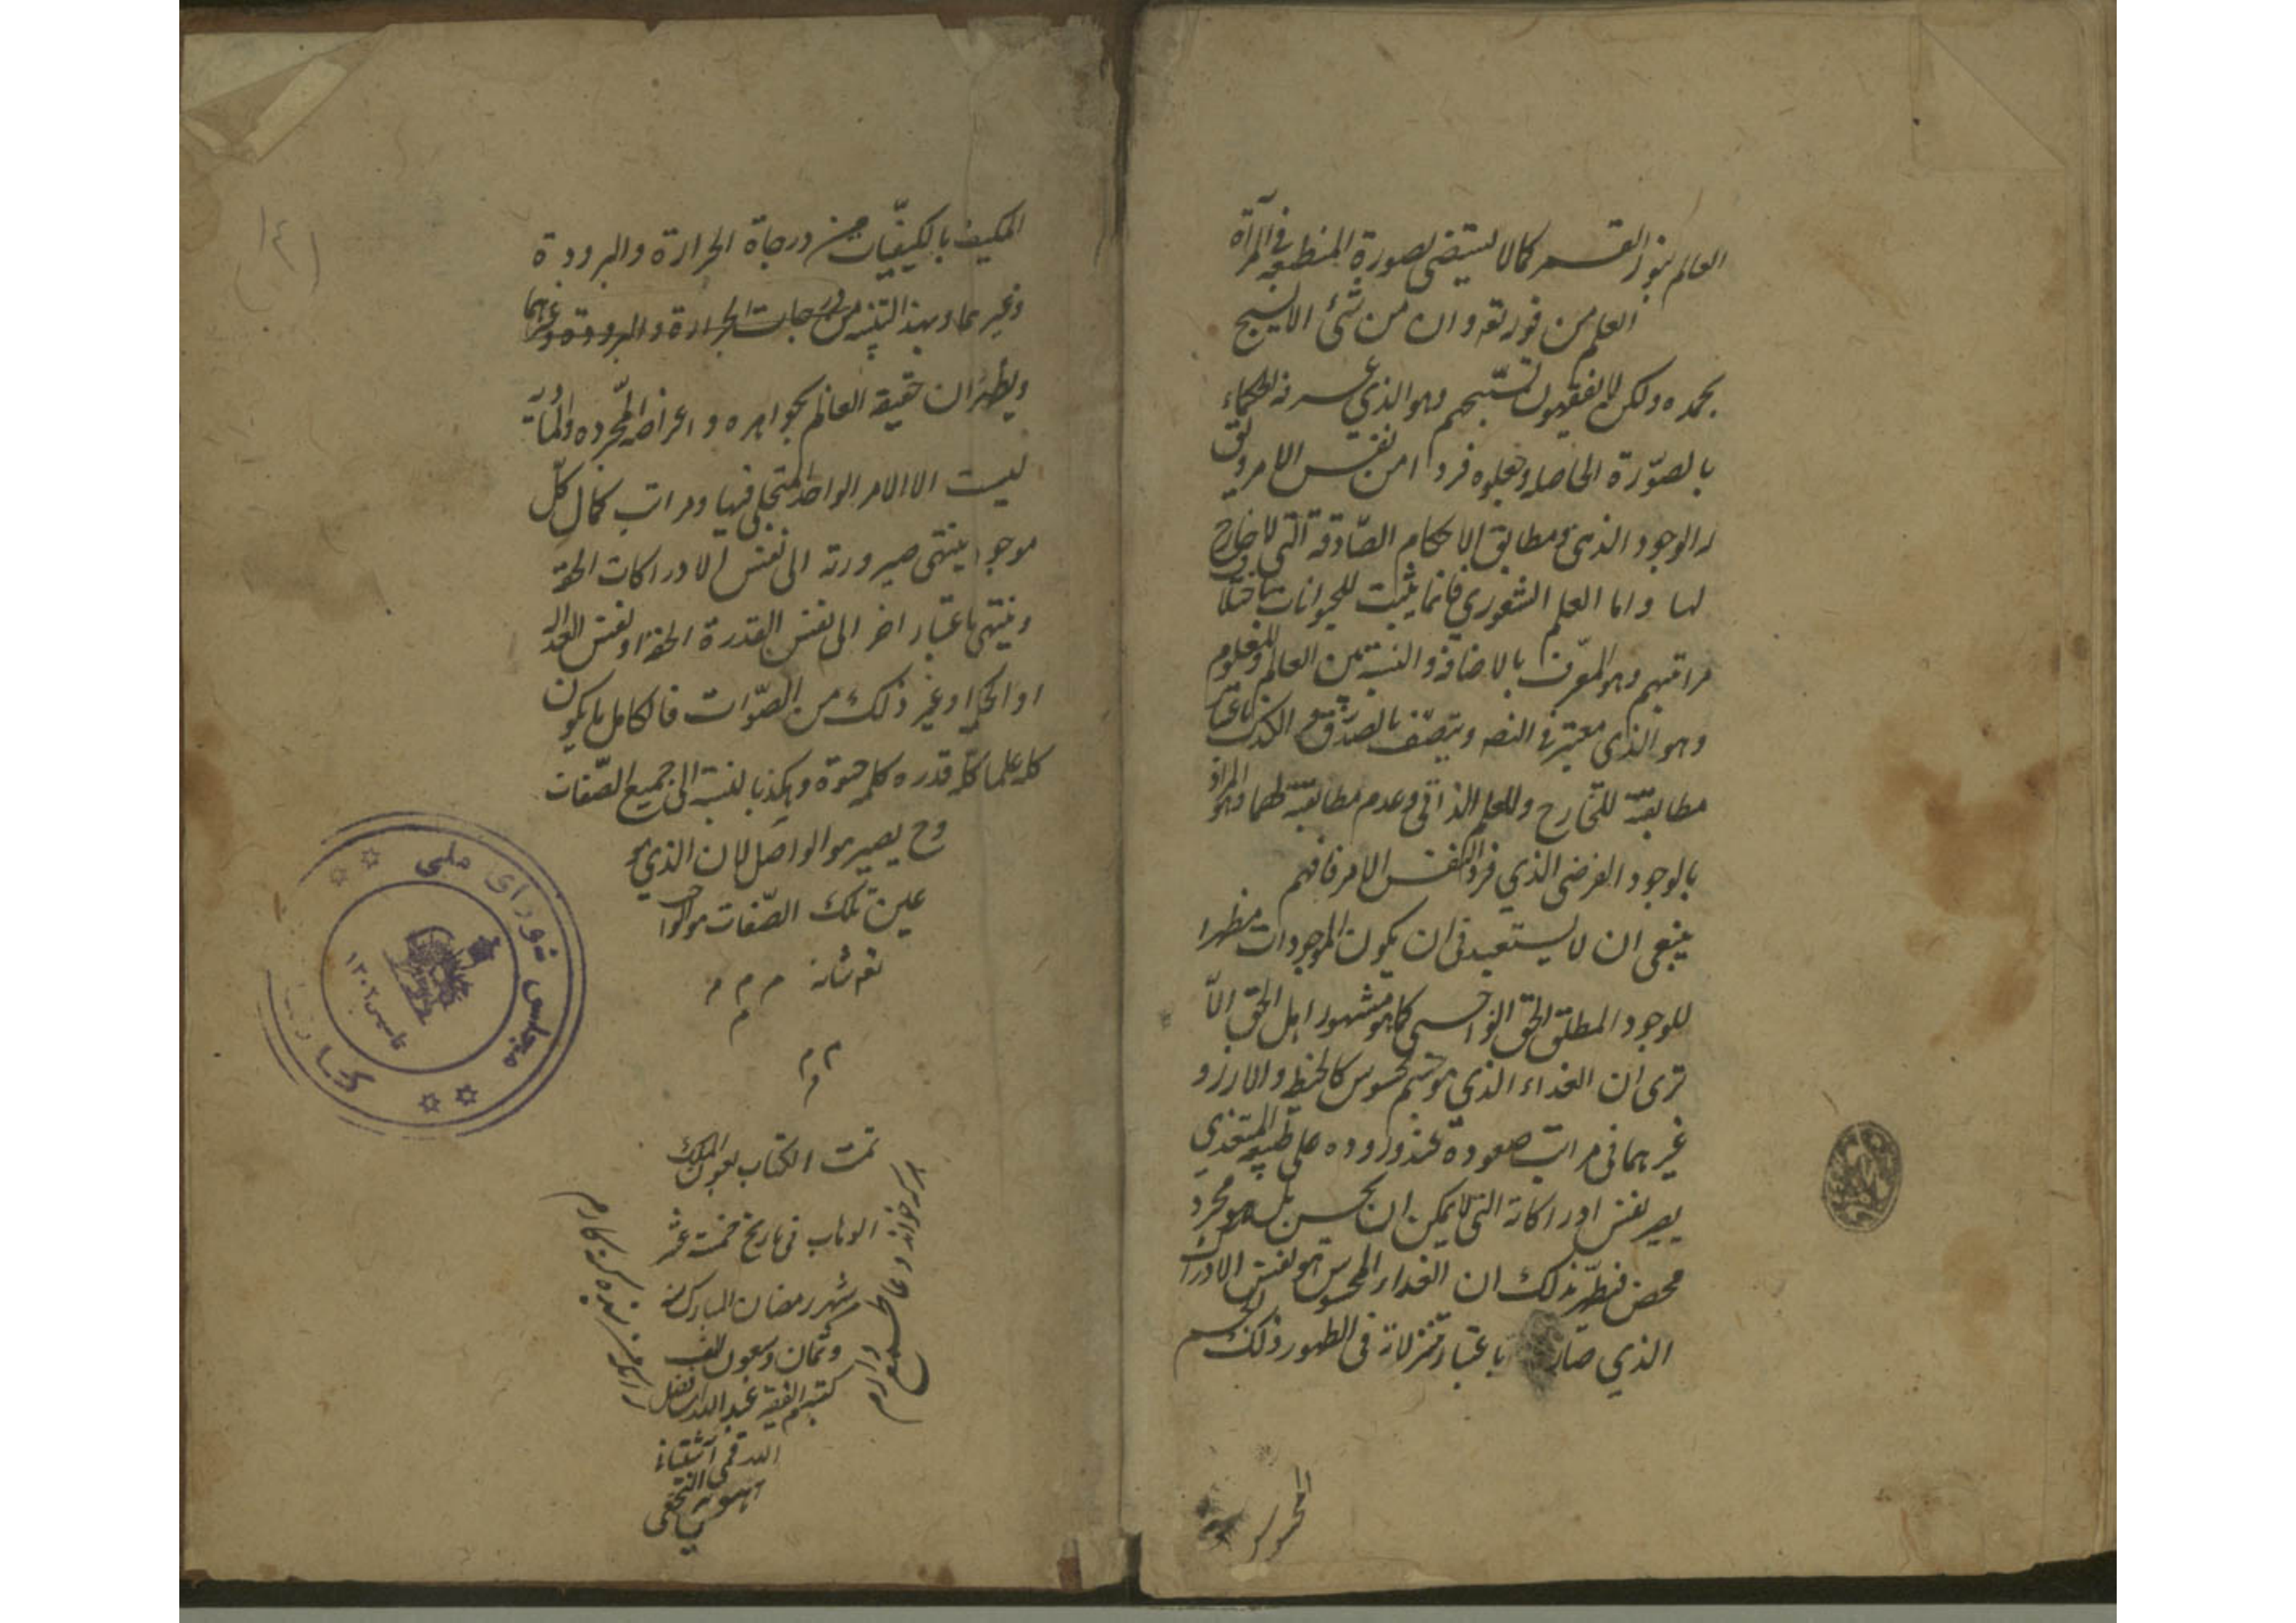 العالم بنور القمر كما لا يستضئ لصورة المنطبعة فى المرآة
العلم من فورته وان من شئ الا يسبح
بحمده ولكن لا يفقهون تسبيحهم وهو الذي عرفه الحكماء
بالصورة الحاصله وجعلوه فردا من نفس الامر
الوجود الذهنى ومطابق الاحكام الصادقة التى لا خارج
لها واما العلم الشعوري فانما يثبت للحيوانات باختلاف
مراتبهم وهو المعرف بالاضافة والنسبة بين العالم والمعلوم
وهو الذي معتبر فى ويتصف بالصدق الكذب باعتبار
مطابقته للخارج وللعلم الذاتى وعدم مطابقته لهما وهو المراد
بالوجود الفرضى الذي فرد لنفس الامر فافهم
ينبغى ان لا يستعبد فى ان يكون الموجودات مظهرا
للوجود المطلق الحق الواجبى كما هو مشهور اهل الحق الا
ترى ان الغذاء الذي هو جسم محسوس كالحنطه والارز و
غيرهما فى مراتب صعوده عند وروده على طبيعة المتغذي
يصير نفس ادراكاته التى لا يمكن ان يحس بل هو مجرد
محض فيظهر بذلك ان الغذاء المحسوس هو نفس الادراك
الذي صار باعتبار تنزلاته فى الظهور ذلك الجسم
المكيف بالكيفيات من درجاة الحرارة والبرودة
وغيرهما وبهذا التنبيه من درجات الحرارة والبرودة وغيرهما
ويظهر ان حقيقة العالم بجواهره و اعراضه المجرده والماديه
ليست الا الامر الواحد المتجلى فيها ومراتب كمال كل
موجود ينتهى صيرورته الى نفس الادراكات الحقة
وينتهى باعتبار اخر الى نفس القدرة الحقة او نفس العداله
او الحكمة او غير ذلك من الصفات فالكامل ما يكون
كله علما كله قدره كله حيوة وهكذا بالنسبة الى جميع الصفات
وح يصير هو الواصل لان الذي هو
عين تلك الصفات هو الواجب
تعه شانه م م م
م م م
تمت الكتاب بعون الملك
الوهاب فى تاريخ خمسة عشر
شهر رمضان المبارك سنه
وثمان وسبعون الف
كتبه الفقير عبد الله ابن فضل
الله قمى
هر که خواند دعا طمع دارم
زانکه من بنده گنه کارم
مجلس شورای ملی
کتابخانه
تاسیس ۱۳۰۲
(١٤